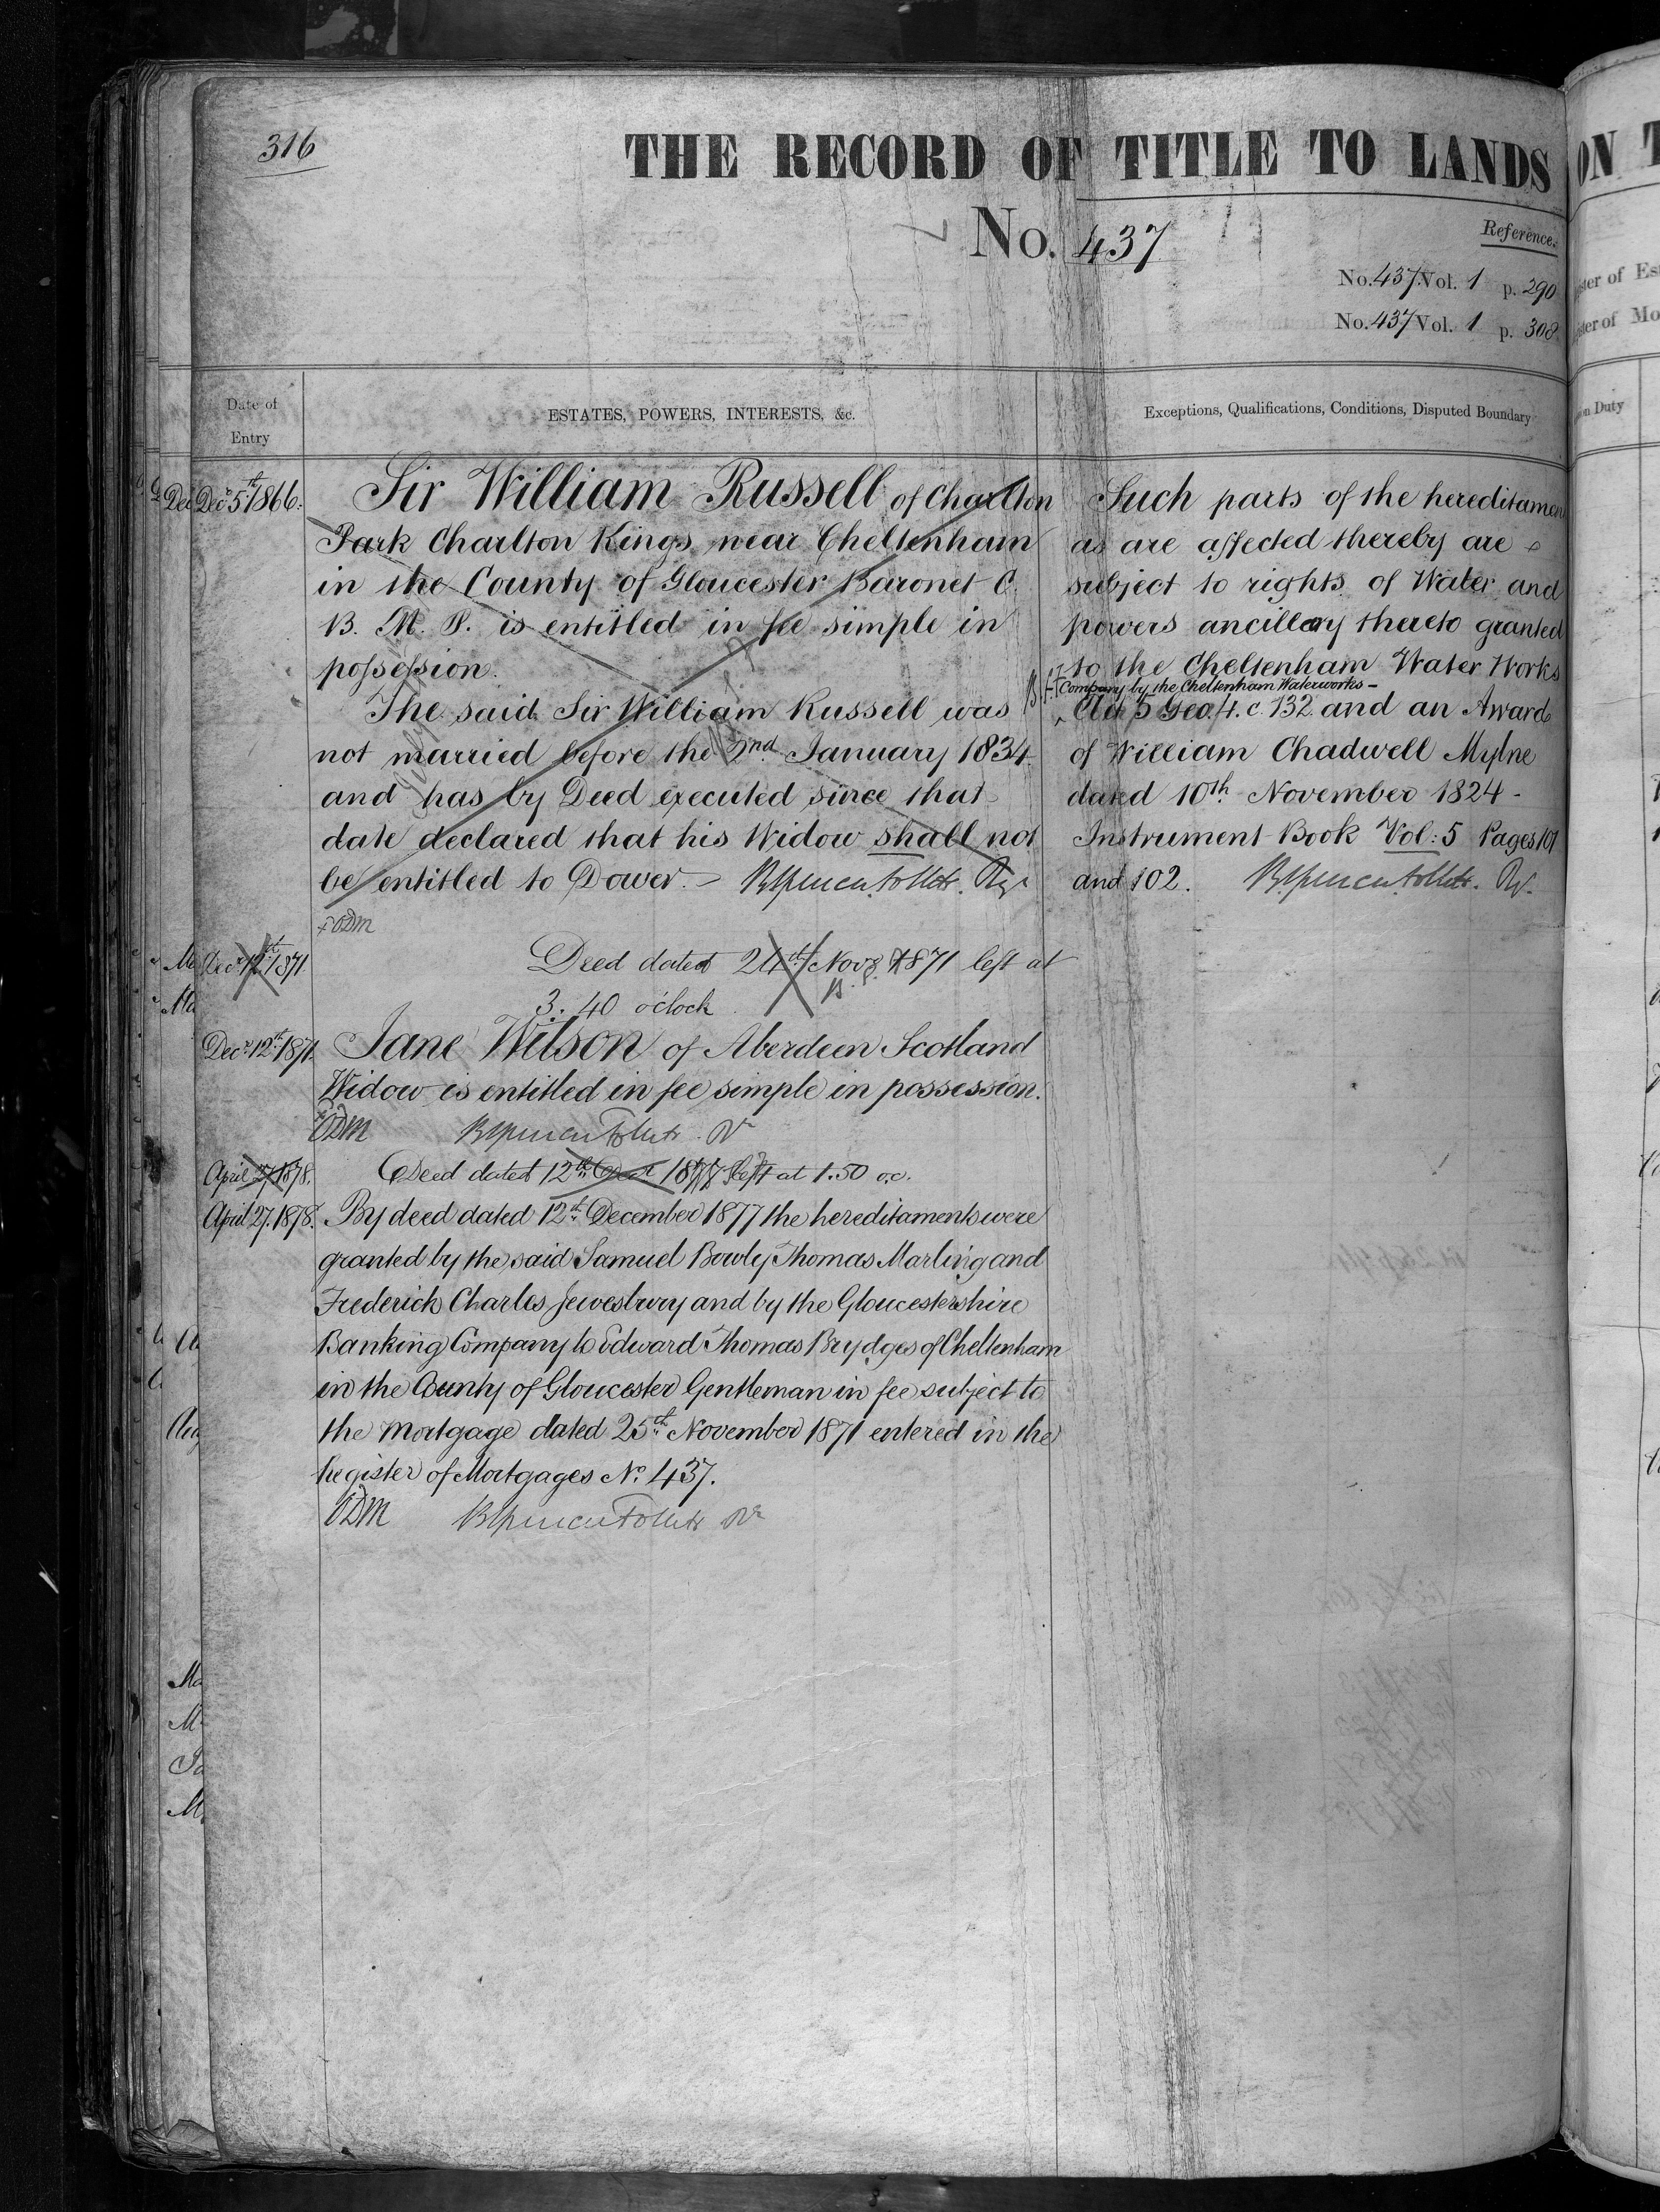 316
THE RECORD OF TITLE TO LANDS
No. 437
Reference.
No. 437. Vol. 1 p. 290
No. 437 Vol. 1 p. 308
Date of
Entry
ESTATES, POWERS, INTERESTS, &c.
Exceptions, Qualifications, Conditions, Disputed Boundary
Decr. 5th 1866.
Sir William Russell of Charlton
Park Charlton Kings near Cheltenham
in the County of Gloucester Baronet C.
B. M. P. is entitled in fee simple in
possession.
The said Sir William Russell was
not married before the 2nd January 1834
and has by Deed executed since that
date declared that his Widow shall not
be entitled to Dower.
ODM
Such parts of the hereditamen
as are affected thereby are
subject to rights of Water and
powers ancillary thereto granted
to the Cheltenham Water Works
Company by the Cheltenham Waterworks
5 Geo. 4. c. 132 and an Award
of William Chadwell Mylne
dated 10th November 1824
Instrument Book Vol: 5 Pages 101
and 102.
Decr. 12th 1871
Deed dated 24th Novr. 1871 left at
3. 40 o'clock
Decr. 12th 1871.
Jane Wilson of Aberdeen Scotland
Widow is entitled in fee simple in possession.
ODM
April 27 1878.
Deed dated 12th Decr 1877 left at 1.50 o.c.
April 27. 1878.
By deed dated 12th December 1877 the hereditaments were
granted by the said Samuel Bowly Thomas Marling and
Frederick Charles Jewesbury and by the Gloucestershire
Banking Company to Edward Thomas Brydges of Cheltenham
in the County of Gloucester Gentleman in fee subject to
the Mortgage dated 25th November 1871 entered in the
Register of Mortgages No. 437.
ODM